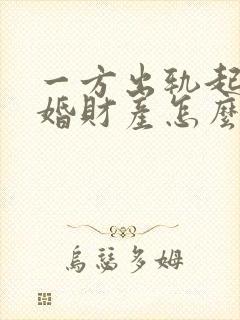 一方出轨起
婚財產怎麼
烏瑟多姆